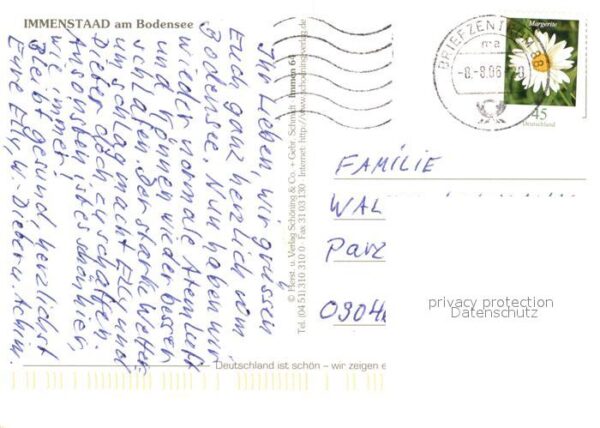 IMMENSTAAD am Bodensee
Ihr Lieben, wir grüssen
Euch ganz herzlich vom
Bodensee. Nun haben wir
wieder normale Atemluft
und können wieder besser
schlafen. Der starke Wetter-
umschlag macht Elly und
Dieter doch zu schaffen.
Ansonsten ist es schön hier,
wie immer!
Bleibt gesund, herzlichst
Eure Elly, W.-Dieter u. Achim.
© Herst. u. Verlag Schöning & Co. + Gebr. Schmidt Immen 64
Tel. (04 51) 310 310 0 · Fax 31 03 130 · Internet: http://www.schoeningverlag.de
BRIEFZENTRUM 88
ma
-8.-8.06
Margerite
45
Deutschland
FAMILIE
WAL
Parz
0304
privacy protection
Datenschutz
Deutschland ist schön – wir zeigen e